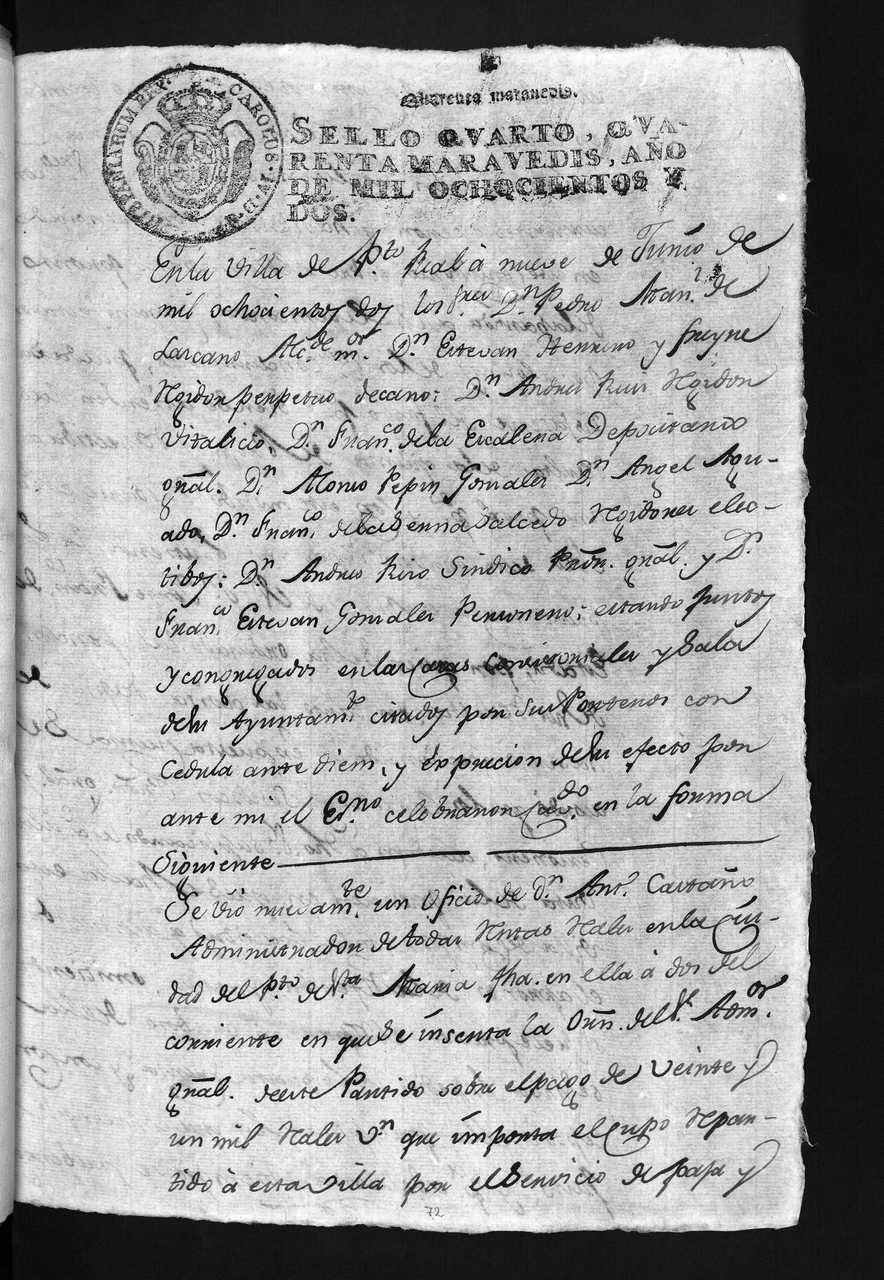 CAROLUS·IV·D·G· HISPANIARUM REX·
Quarenta maravedis.
SELLO QVARTO, QVA-
RENTA MARAVEDIS, AÑO
DE MIL OCHOCIENTOS Y
DOS.
En la Villa de Pto. Real à nueve de Junio de
mil ochocientos dos los Sres. Dn. Pedro Man.l de
Larcano Alc.de mor. Dn. Estevan Herrero y freyre
Rexidor perpetuo decano: Dn. Andres Ruiz Rexidor
Vitalicio, Dn. Fran.co de la Escalera Depositario
gñal. Dn. Alonso Pepin Gonzales Dn. Angel Agu-
ado, Dn. Fran.co de la Serna Salcedo Rexidores elec-
tibos: Dn. Andres Rizo Sindico Prõr. gñal. y Dn.
Fran.co Estevan Gonzales Personero; estando juntos
y congregados en las casas Consistoriales y Sala
de su Ayuntam.to citados por sus Porteros con
Cedula ante diem, y expresion de su efecto por
ante mi el Esno. celebraron Cavdo. en la forma
Siguiente
Se vió nuevamte. un Oficio de Dn. Ant.o Cartaño
Administrador de todas Rentas Rales en la Ciu-
dad del Pto. de Sta. Maria fha. en ella à dos del
corriente en que se insenta la Orn. del Sr. Admor.
gñal. de este Partido sobre el pago de Veinte y
un mil Rales Vn. que importa el cupo Repar-
tido à esta villa por el Servicio de paja y
72